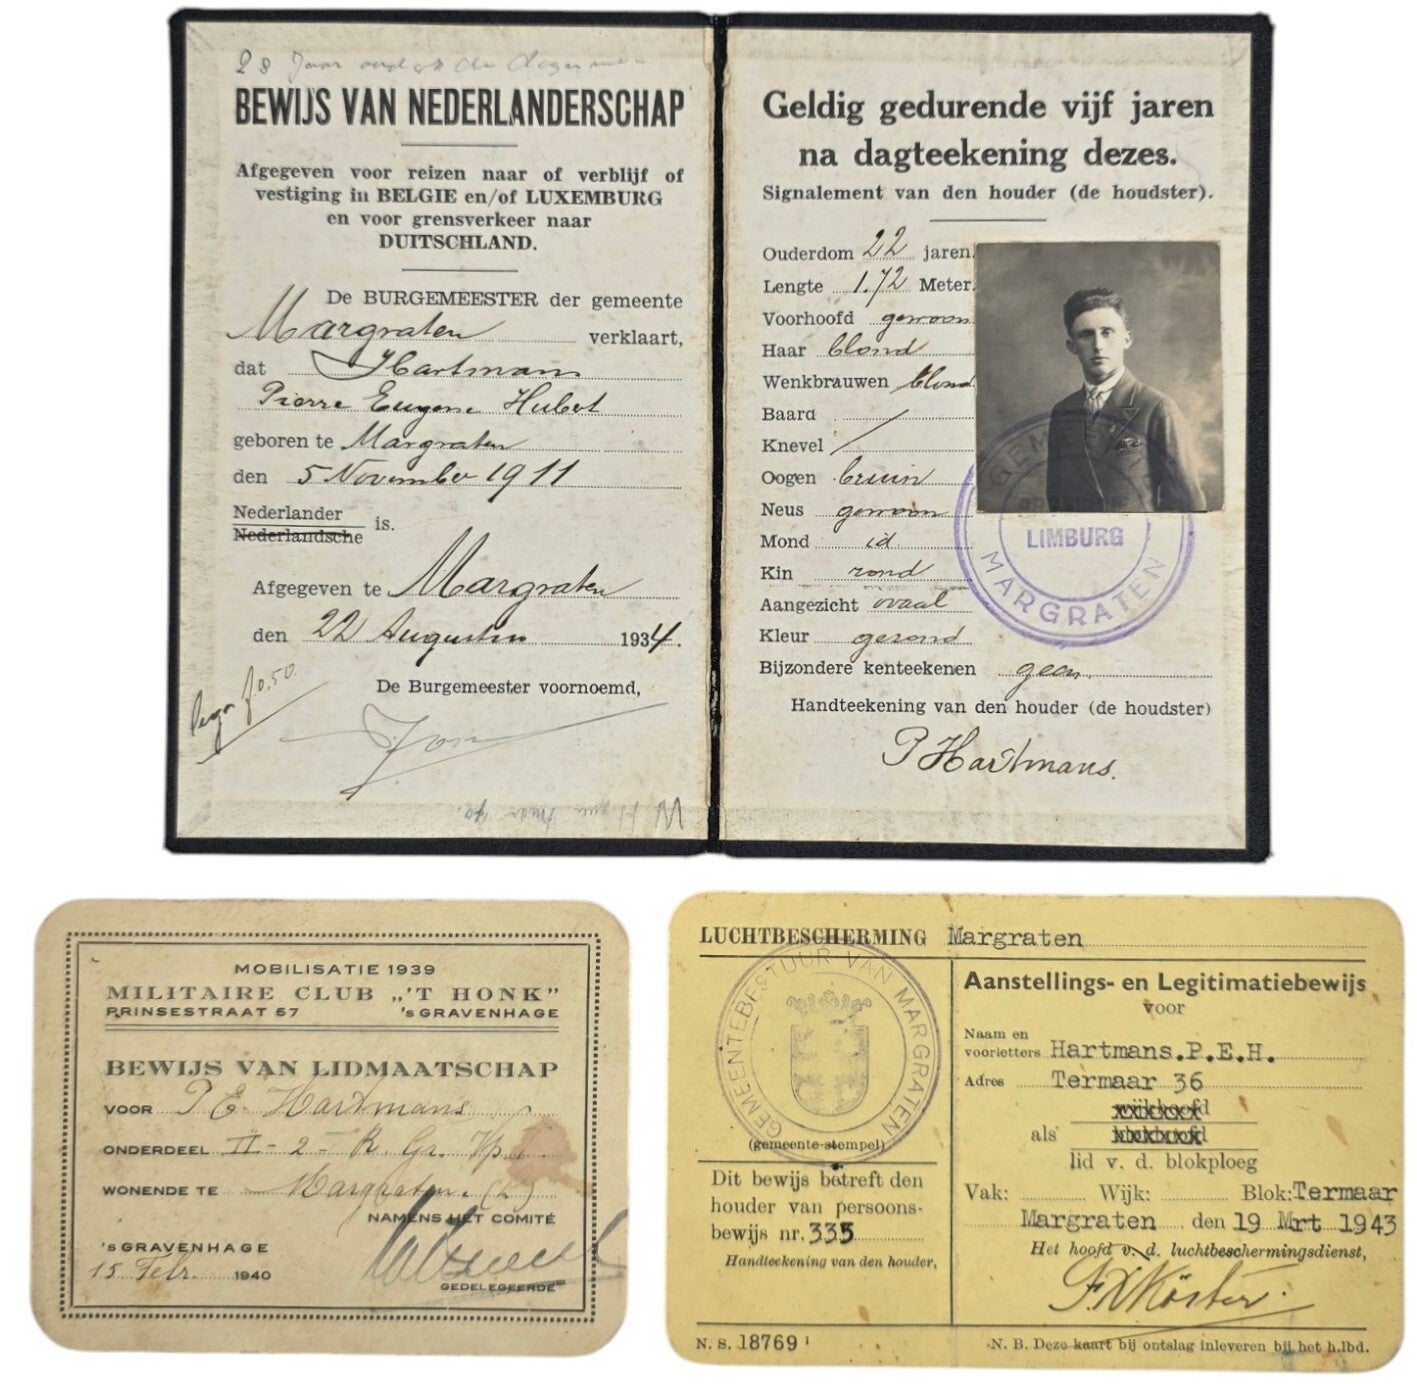 28 Jaar oud
BEWIJS VAN NEDERLANDERSCHAP
Afgegeven voor reizen naar of verblijf of
vestiging in BELGIE en/of LUXEMBURG
en voor grensverkeer naar
DUITSCHLAND.
De BURGEMEESTER der gemeente
Margraten verklaart,
dat Hartmans
Pierre Eugene Hubert
geboren te Margraten
den 5 November 1911
Nederlander
Nederlandsche is.
Afgegeven te Margraten
den 22 Augustus 1934.
f.0.50.
De Burgemeester voornoemd,
Geldig gedurende vijf jaren
na dagteekening dezes.
Signalement van den houder (de houdster).
Ouderdom 22 jaren
Lengte 1.72 Meter.
Voorhoofd gewoon
Haar blond
Wenkbrauwen blond
Baard /
Knevel /
Oogen bruin
Neus gewoon
Mond id
Kin rond
Aangezicht ovaal
Kleur gezond
Bijzondere kenteekenen geen
Handteekening van den houder (de houdster)
P Hartmans.
LIMBURG
MARGRATEN
MOBILISATIE 1939
MILITAIRE CLUB „'T HONK"
PRINSESTRAAT 57 'sGRAVENHAGE
BEWIJS VAN LIDMAATSCHAP
VOOR P E Hartmans
ONDERDEEL II - 2 - R. Gr.
WONENDE TE Margraten. (L)
NAMENS HET COMITÉ
'sGRAVENHAGE
15 Febr. 1940
GEDELEGEERDE
LUCHTBESCHERMING Margraten
GEMEENTEBESTUUR VAN MARGRATEN
(gemeente-stempel)
Dit bewijs betreft den
houder van persoons-
bewijs nr. 335
Handteekening van den houder,
N. S. 18769
Aanstellings- en Legitimatiebewijs
voor
Naam en
voorletters Hartmans.P.E.H.
Adres Termaar 36
wijkhoofd
als blokhoofd
lid v. d. blokploeg
Vak: Wijk: Blok: Termaar
Margraten den 19 Mrt 1943
Het hoofd v. d. luchtbeschermingsdienst,
N. B. Deze kaart bij ontslag inleveren bij het h.lbd.